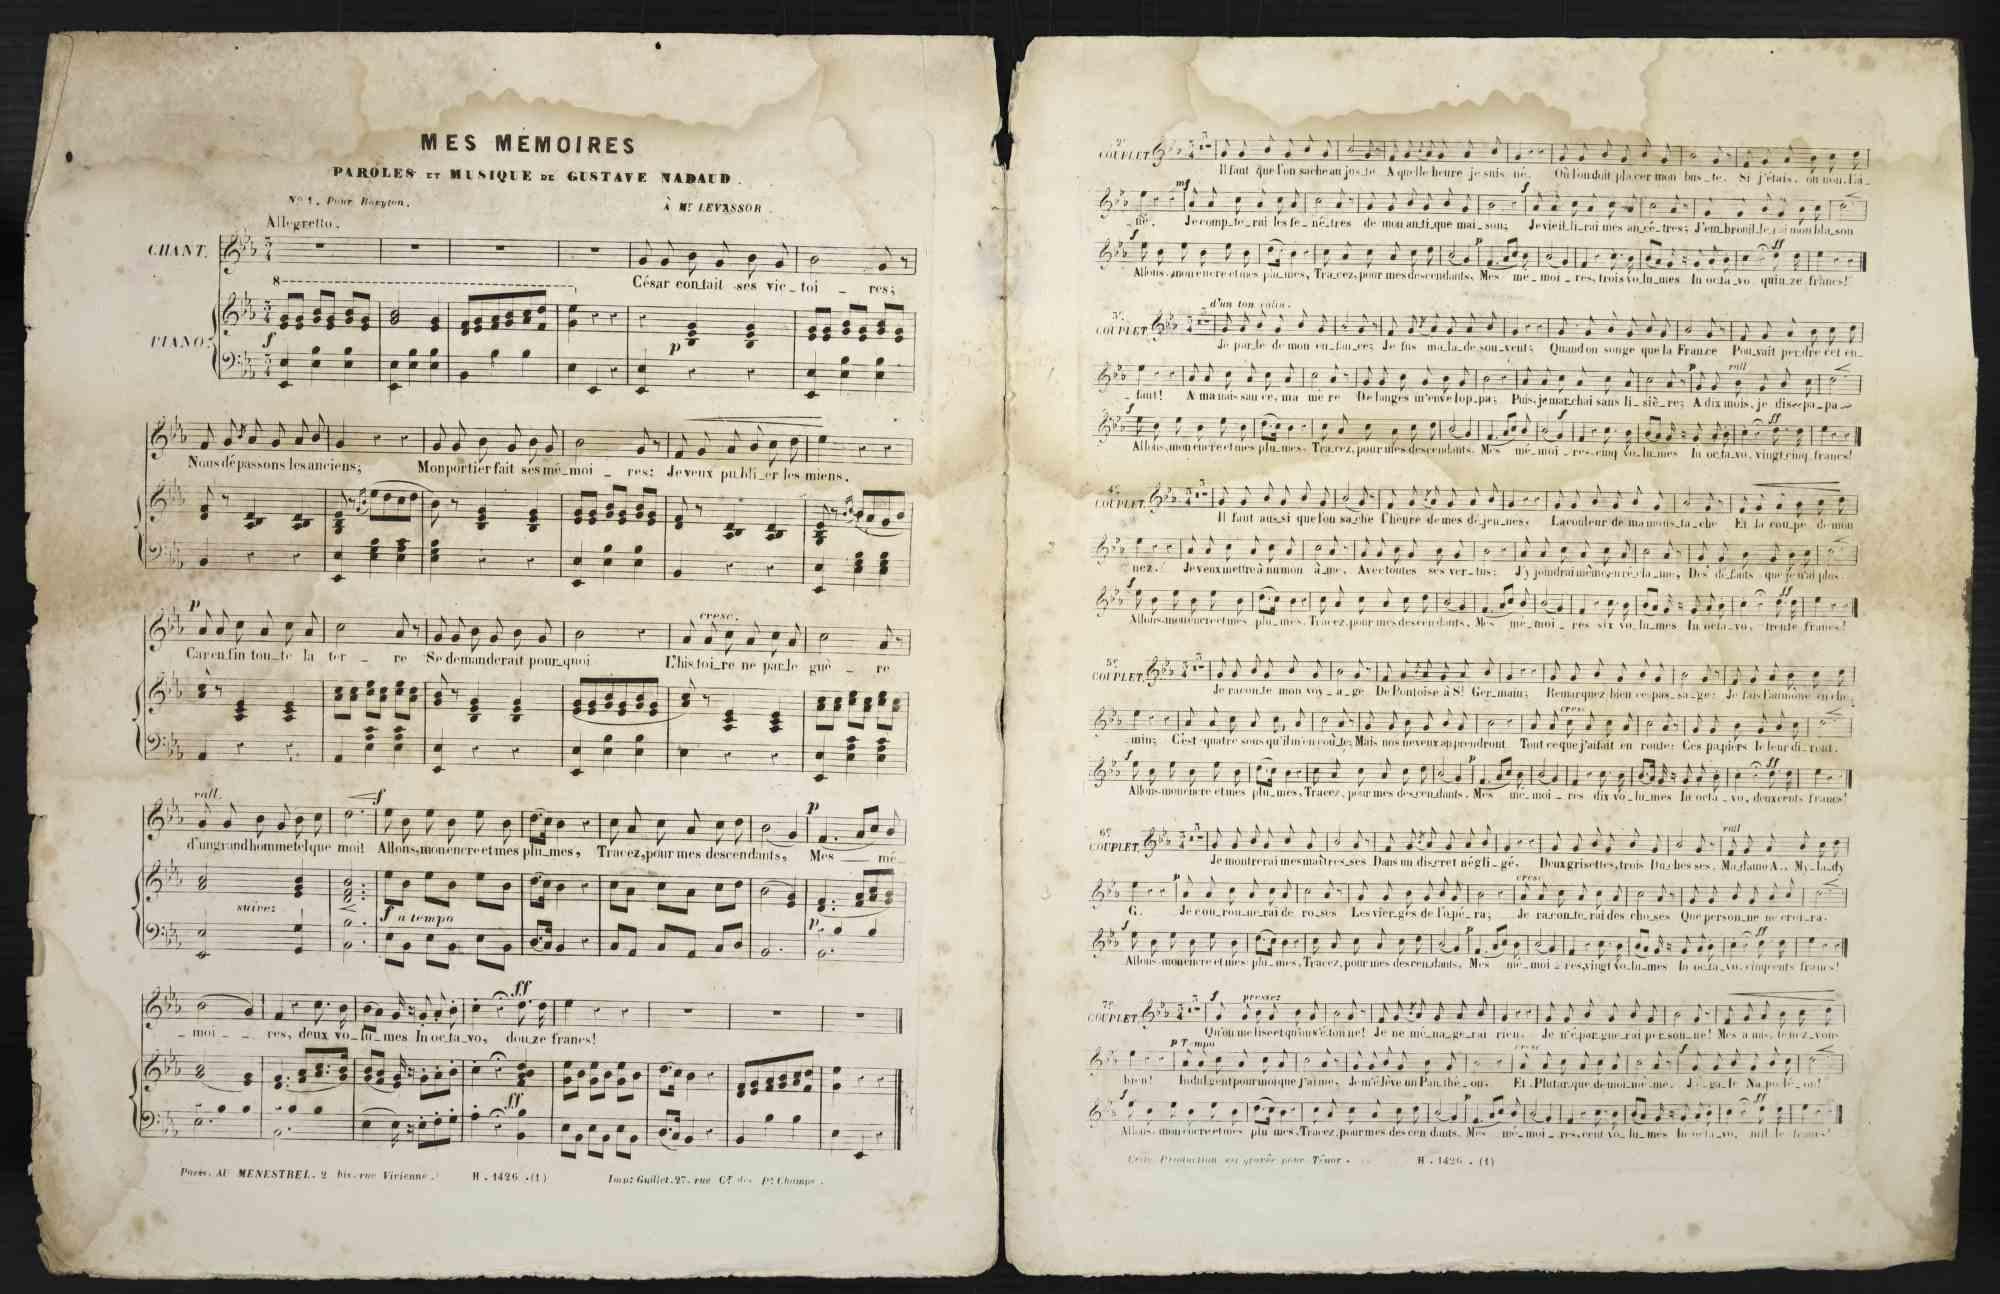 MES MÉMOIRES
PAROLES ET MUSIQUE DE GUSTAVE NADAUD.
N° 1. Pour Baryton.
À Mr LEVASSOR.
Allegretto.
CHANT.
César contait ses vic_toi _ res;
8
PIANO.
f
p
Nous dépassons les anciens; Mon portier fait ses mé_moi _ res: Je veux pu_bli_er les miens.
p
cresc.
Car en_fin tou_te la ter _ re Se demanderait pour_quoi L'his_toi_re ne par_le guè _ re
rall.
f
p
d'un grand homme tel que moi! Allons, mon encre et mes plu_mes, Tracez, pour mes descendants, Mes _ mé_
suivez
f a tempo
p
ff
_ moi _ res, deux vo_lu_mes In oc_ta_vo, douze francs!
ff
Paris. AU MENESTREL. 2 bis. rue Vivienne.
H. 1426 .(1)
Imp: Guillet. 27. rue Cx des Pts Champs.
2e COUPLET.
Il faut que l'on sache au jus_te A quelle heure je suis né. Où l'on doit pla_cer mon bus_te. Si j'étais, ou non, l'aî_
mf
f
_né. Je comp_te_rai les fe_nê_tres de mon an_ti_que mai_son; Je vieil_li_rai mes an_cê_tres; J'em_brouil_le_rai mon bla_son
f
p
ff
Allons, mon encre et mes plu_mes, Tra_cez, pour mes descendants, Mes mé_moi_res, trois vo_lu_mes In oc_ta_vo quin_ze francs!
d'un ton calin.
3e COUPLET.
Je par_le de mon en_fan_ce; Je fus ma_la_de sou_vent; Quand on songe que la Fran_ce Pou_vait per_dre cet en_
p
rall
_fant! A ma nais_san_ce, ma mè_re De langes m'enve_lop_pa; Puis, je mar_chai sans li_siè_re; A dix mois, je dis: pa_pa
f
f
ff
Allons, mon encre et mes plu_mes, Tra_cez, pour mes descendants, Mes mé_moi_res, cinq vo_lu_mes In oc_ta_vo, vingt cinq francs!
4e COUPLET.
Il faut aus_si que l'on sa_che l'heure de mes dé_jeu_nes, La couleur de ma mous_ta_che Et la cou_pe de mon
nez. Je veux mettre à nu mon â_me, Avec toutes ses ver_tus; J'y joindrai même, en ré_cla_me, Des dé_fauts que je n'ai plus.
f
ff
Allons, mon encre et mes plu_mes, Tracez, pour mes descendants, Mes mé_moi_res six vo_lu_mes In octa_vo, trente francs!
5e COUPLET.
Je racon_te mon voy_a_ge De Pontoise à St Ger_main; Remarquez bien ce pas_sa_ge: Je fais l'aumône en che_
cresc
min; C'est quatre sous qu'il m'en coû_te; Mais nos neveux apprendront Tout ce que j'ai fait en route: Ces papiers le leur di_ront.
f
p
ff
Allons, mon encre et mes plu_mes, Tracez, pour mes descendants, Mes mé_moi_res dix vo_lu_mes In octa_vo, deux cents francs!
rall
6e COUPLET.
Je montrerai mes maîtres_ses Dans un discret négli_gé, Deux grisettes, trois Du_ches_ses, Madame A.. My_la_dy
p
cresc
G. Je cou_ron_ne_rai de ro_ses Les vier_ges de l'o_pé_ra; Je ra_con_te_rai des cho_ses Que person_ne ne croi_ra.
f
p
ff
Allons, mon encre et mes plu_mes, Tracez, pour mes descendants, Mes mé_moi_res, vingt vo_lu_mes In oc_ta_vo, cinq cents francs!
f
pressez
7e COUPLET.
Qu'on me lise et qu'on s'é_ton_ne! Je ne mé_na_ge_rai rien, Je n'é_par_gne_rai per_son_ne! Mes a_mis, te_nez_vous
p Tempo
cresc
f
bien! Indulgent pour moi que j'aime, Je m'élève un Pan_thé_on, Et Plutar_que de moi_mê_me, J'é_ga_le Na_po_lé_on!
f
p
ff
Allons, mon encre et mes plu_mes, Tracez, pour mes descendants, Mes mé_moi_res, cent vo_lu_mes In octa_vo, mil_le francs!
Cette Production est gravée pour Ténor.
H. 1426 . (1)